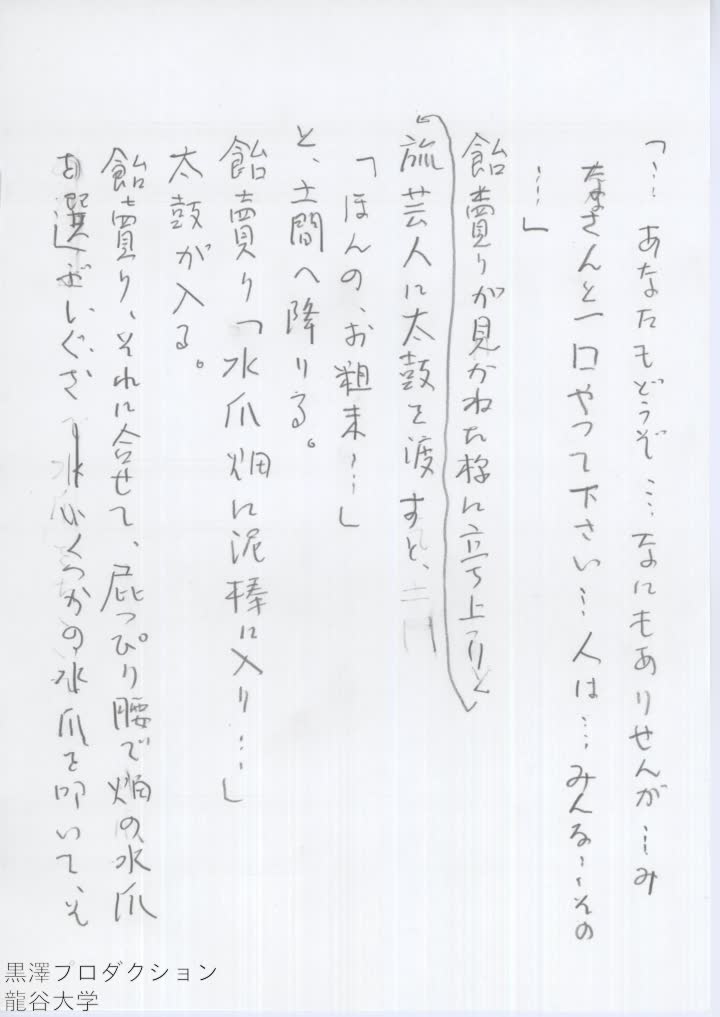 「…あなたもどうぞ…なにもありせんが…み
なさんと一口やつて下さい…人は…みんな…その
…」
飴賣りが見かねた様に立ち上りと
旅芸人に太鼓を渡すと、
「ほんの、お粗末…」
と、土間へ降りる。
飴賣り「水爪畑に泥棒に入り…」
太鼓が入る。
飴賣り、それに合せて、屁っぴり腰で畑の水爪
を選び いくつかの水爪を叩いて、そ
黒澤プロダクション
龍谷大学